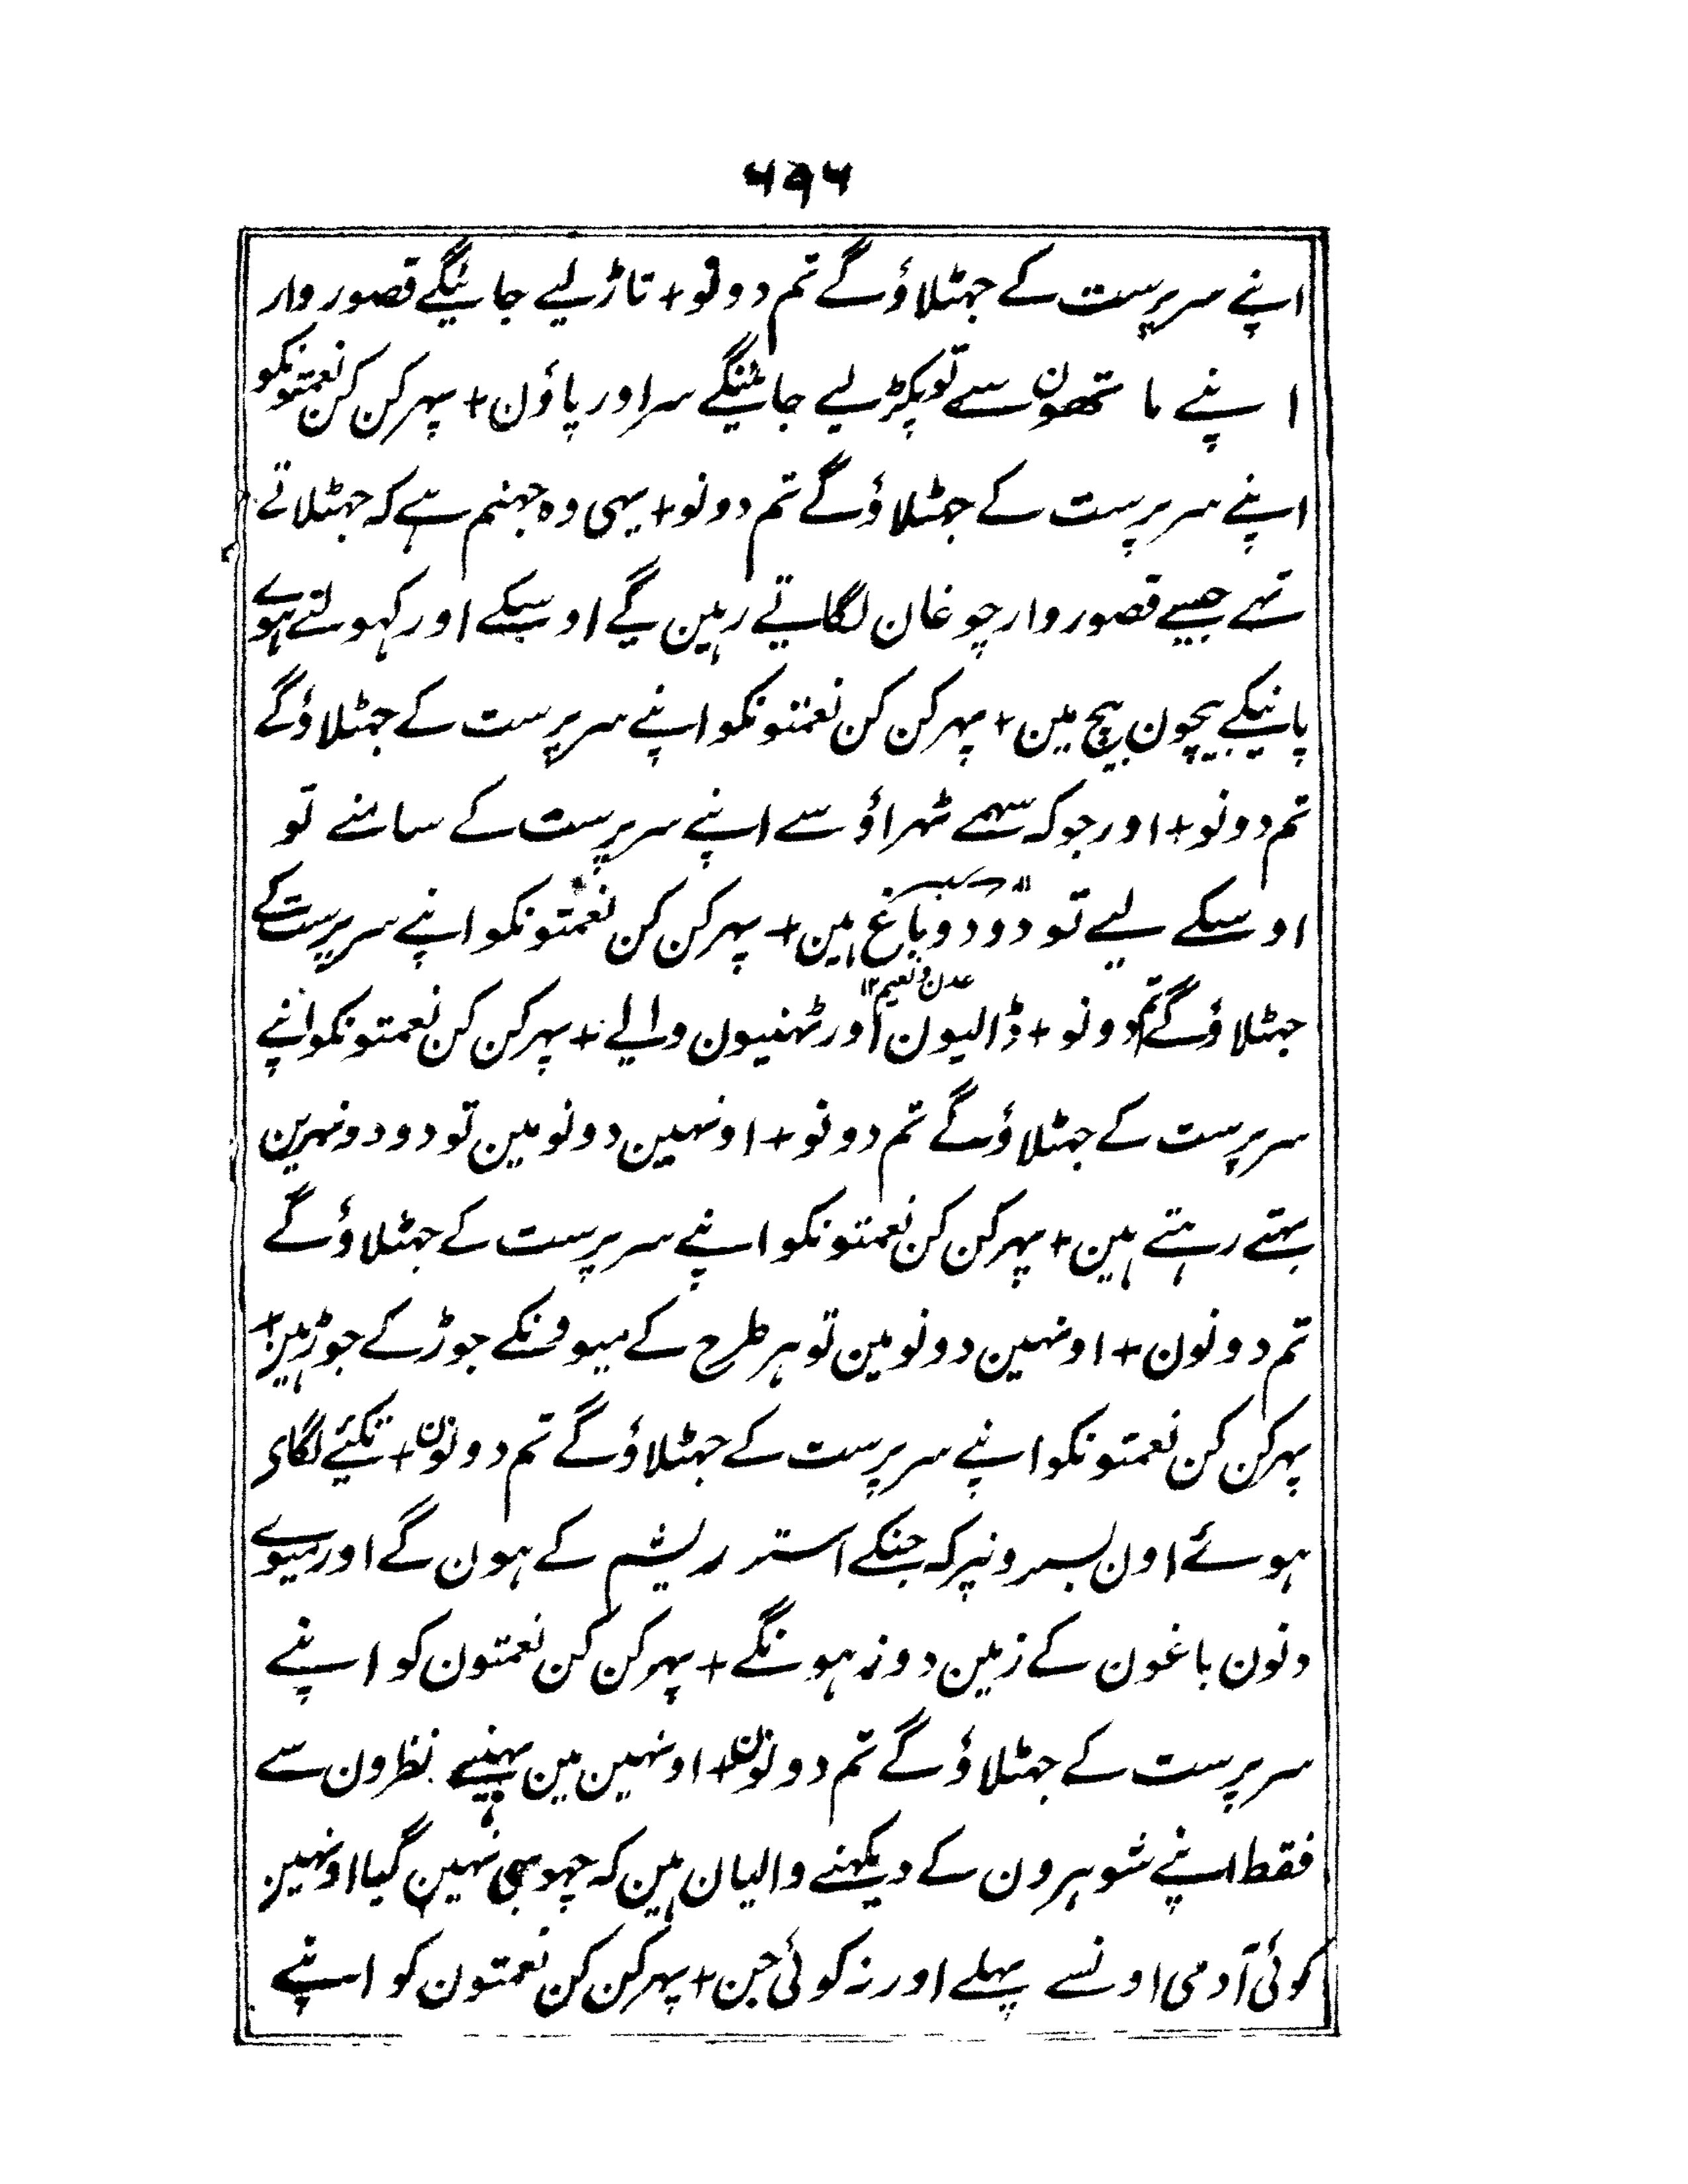 ۶۹۶
اپنے سرپرست کے جہٹلاؤگے تم دونو + تاڑ لیے جائینگے قصور وار
اپنے ماتھون سے تو پکڑ لیے جائینگے سر اور پاؤن + پہر کن کن نعمتونکو
اپنے سرپرست کے جہٹلاؤگے تم دونو + یہی وہ جہنم ہے کہ جہٹلاتے
تہے جسے قصور وار چوغان لگاتے رہین گے اوسکے اور کہولتے ہوے
پانیکے بیچون بیچ مین + پہر کن کن نعمتونکو اپنے سرپرست کے جہٹلاؤگے
تم دونو + اور جو کہ سہمے ٹہراؤ سے اپنے سرپرست کے سامنے تو
اوسکے لیے تو دو دو باغ ہین + پہر کن کن نعمتونکو اپنے سرپرست کے
عدن و نعیم ۱۲
جہٹلاؤگے تم دونو + ڈالیون اور ٹہنیون والے + پہر کن کن نعمتونکو اپنے
سرپرست کے جہٹلاؤگے تم دونو + اونہین دونو مین تو دو دو نہرین
بہتے رہتے ہین + پہر کن کن نعمتونکو اپنے سرپرست کے جہٹلاؤگے
تم دونون + اونہین دونو مین تو ہر طرح کے میوونکے جوڑ کے جوڑ ہین +
پہر کن کن نعمتونکو اپنے سرپرست کے جہٹلاؤگے تم دونون + تکئے لگای
ہوئے اون بسترونپر کہ جنکے استر ریشم کے ہون گے اور میوے
دنون باغون کے زمین دوز ہونگے + پہر کن کن نعمتون کو اپنے
سرپرست کے جہٹلاؤگے تم دونون + اونہین مین نظرون سے
فقط اپنے شوہرون کے دیکہنے والیان ہین کہ چہو بہی نہین گیا اونہین
کوئی آدمی اونسے پہلے اور نہ کوئی جن + پہر کن کن نعمتون کو اپنے